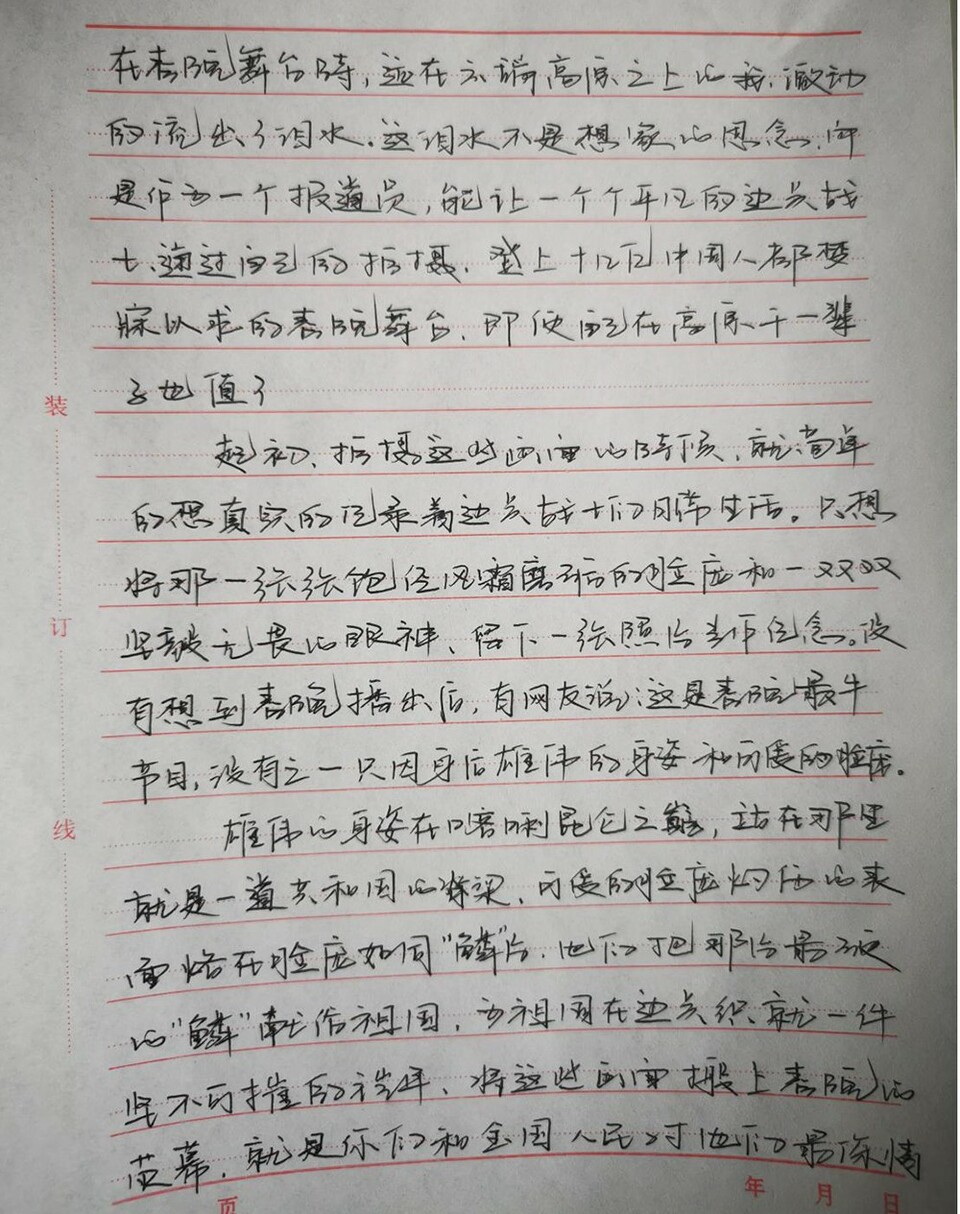 在春晚舞台时，远在云端高原之上的我，激动
的流出了泪水。这泪水不是想家的思念，而
是作为一个报道员，能让一个个平凡的边关战
士、通过自己的拍摄、登上十几亿中国人都梦
寐以求的春晚舞台、即使自己在高原干一辈
子也值了
起初、拍摄这些画面的时候，就简单
的想真实的记录着边关战士们日常生活。只想
将那一张张饱经风霜磨砺的脸庞和一双双
坚毅无畏的眼神、留下一张照片当作纪念。没
有想到春晚播出后，有网友说：这是春晚最牛
节目，没有之一只因身后雄伟的身姿和可爱的脸庞。
雄伟的身姿在喀喇昆仑之巅，站在那里
就是一道共和国的脊梁，可爱的脸庞灼伤的表
面烙在脸庞如同"鳞"片，他们把那片最硬
的"鳞"献给祖国，为祖国在边关织就一件
坚不可摧的，将这些画面搬上春晚的
荧幕，就是你们和全国人民对他们最深情
装
订
线
页
年 月 日